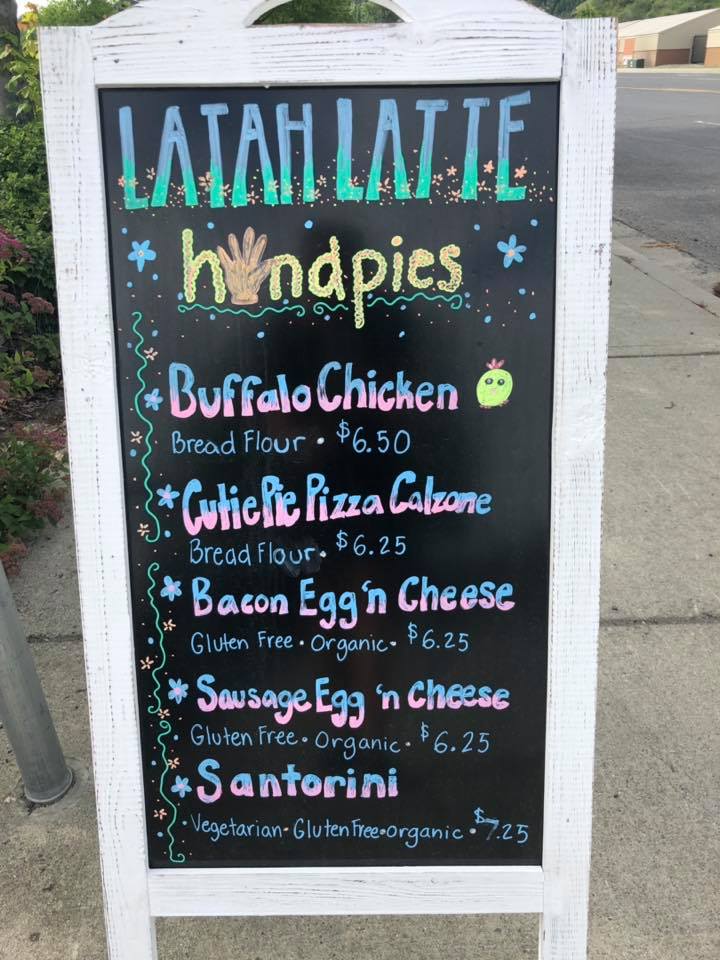 LATAH LATTE
handpies
Buffalo Chicken
Bread Flour • $6.50
Cutie Pie Pizza Calzone
Bread Flour • $6.25
Bacon Egg 'n Cheese
Gluten Free • Organic • $6.25
Sausage Egg 'n Cheese
Gluten Free • Organic • $6.25
Santorini
• Vegetarian • Gluten Free • organic • $7.25